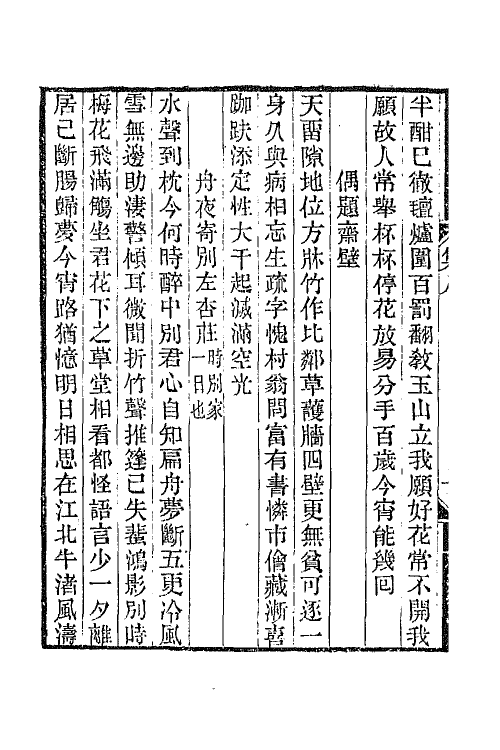 半酣已徹氍爐圍百罰翻教玉山立我願好花常不開我
願故人常舉杯杯停花放易分手百歲今宵能幾囘
偶題齋壁
天畱隙地位方牀竹作比鄰草護牆四壁更無貧可逐一
身久與病相忘生疏字愧村翁問富有書憐市儈藏漸喜
跏趺添定性大千起滅滿空光
舟夜寄別左杏莊時別家一日也
水聲到枕今何時醉中別君心自知扁舟夢斷五更冷風
雪無邊助淒警傾耳微聞折竹聲推篷已失蜚鴻影別時
梅花飛滿觴坐君花下之草堂相看都怪語言少一夕離
居已斷腸歸夢今宵路猶憶明日相思在江北牛渚風濤